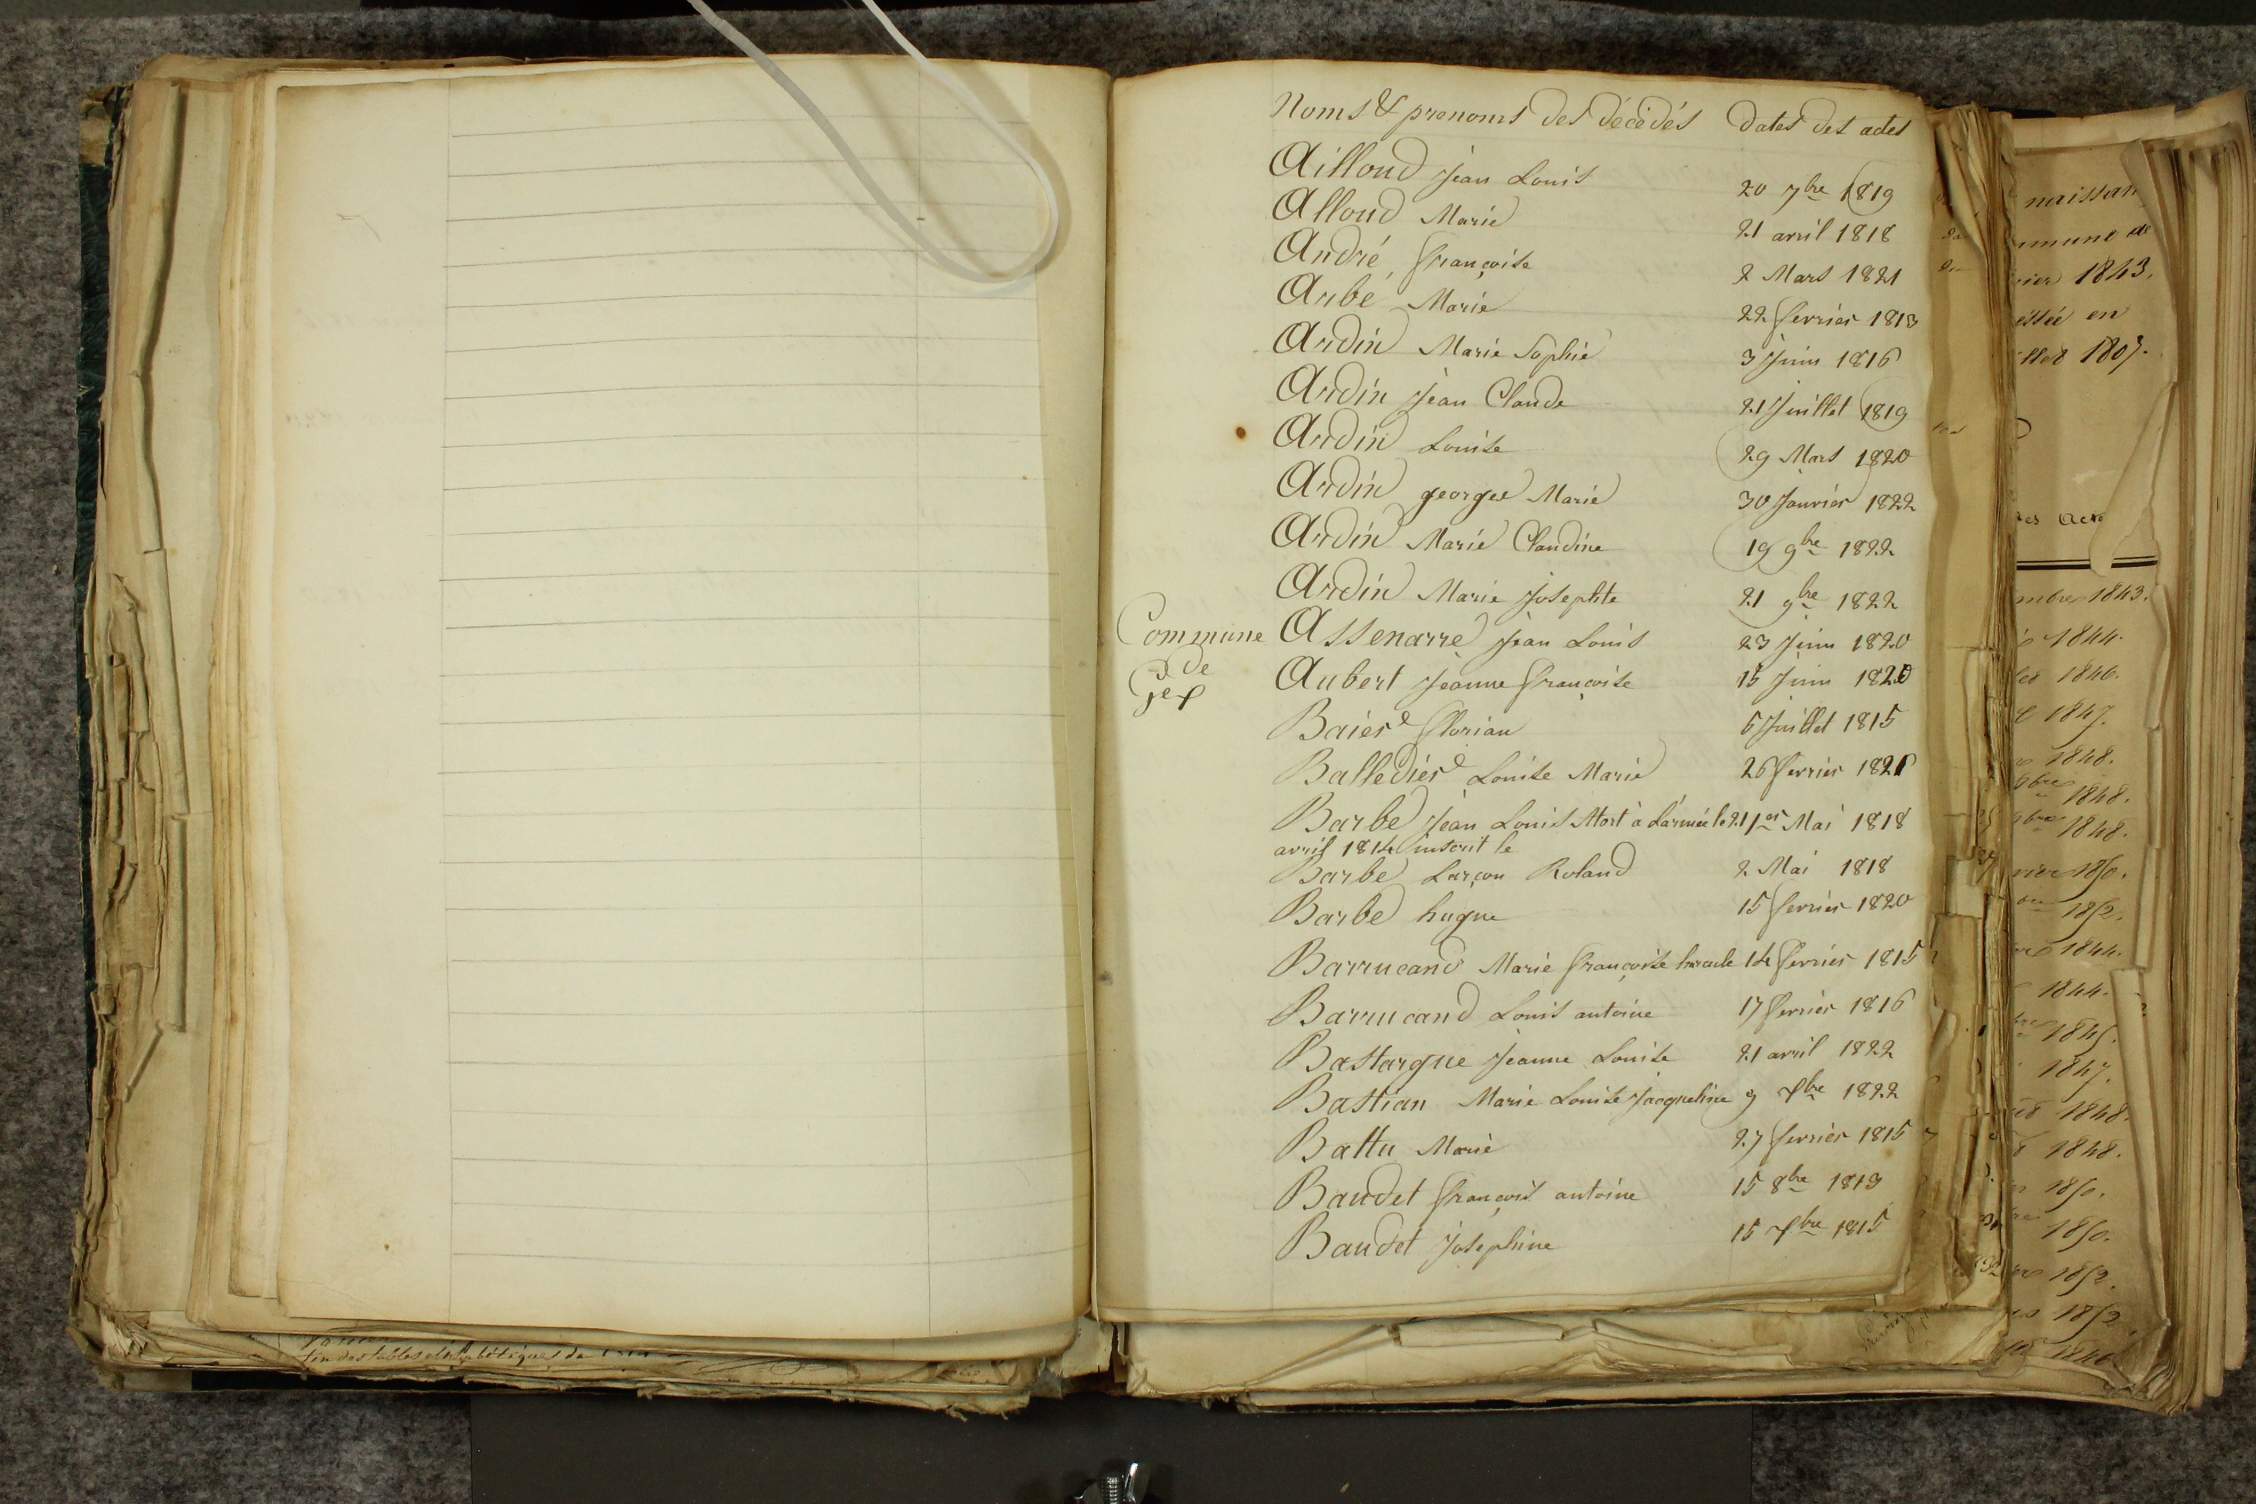 Noms & prenoms des décédés Dates des actes
Ailloud Jean Louis 20 7bre 1819
Alloud Marie 21 avril 1818
André françoise 2 Mars 1821
Arbe Marie 22 fevrier 1813
Ardin Marie Sophie 3 Juin 1816
Ardin Jean Claude 21 Juillet 1819
Ardin Louise 29 Mars 1820
Ardin george Marie 30 Janvier 1822
Ardin Marie Claudine 19 9bre 1822
Ardin Marie Josephte 21 9bre 1822
Commune
de
Gex
Assenarre Jean Louis 23 Juin 1820
Aubert Jeanne françoise 15 Juin 1820
Baier florian 6 Juillet 1815
Balledier Louise Marie 26 fevrier 1821
Barbe Jean Louis Mort à Larmée le 21 1er Mai 1818
avril 1814 inscrit le
Barbe Larçon Roland 2 Mai 1818
Barbe hugue 15 fevrier 1820
Barrucand Marie françoise 14 fevrier 1815
Barrucand Louis antoine 17 fevrier 1816
Bastargue Jeanne Louise 21 avril 1822
Bastian Marie Louise Jacqueline 9 Xbre 1822
Battu Marie 27 fevrier 1815
Baudet françois antoine 15 8bre 1813
Baudet Josephine 15 Xbre 1815
naissan
mmune de
1843.
en
1807.
Acte
mbre 1843.
1844.
1846.
1847.
1848.
1848.
1848.
1850.
1852.
1844.
1844.
1845.
1847.
1848.
1848.
1850.
1850.
1852.
1852
fin des tables alphabétiques de